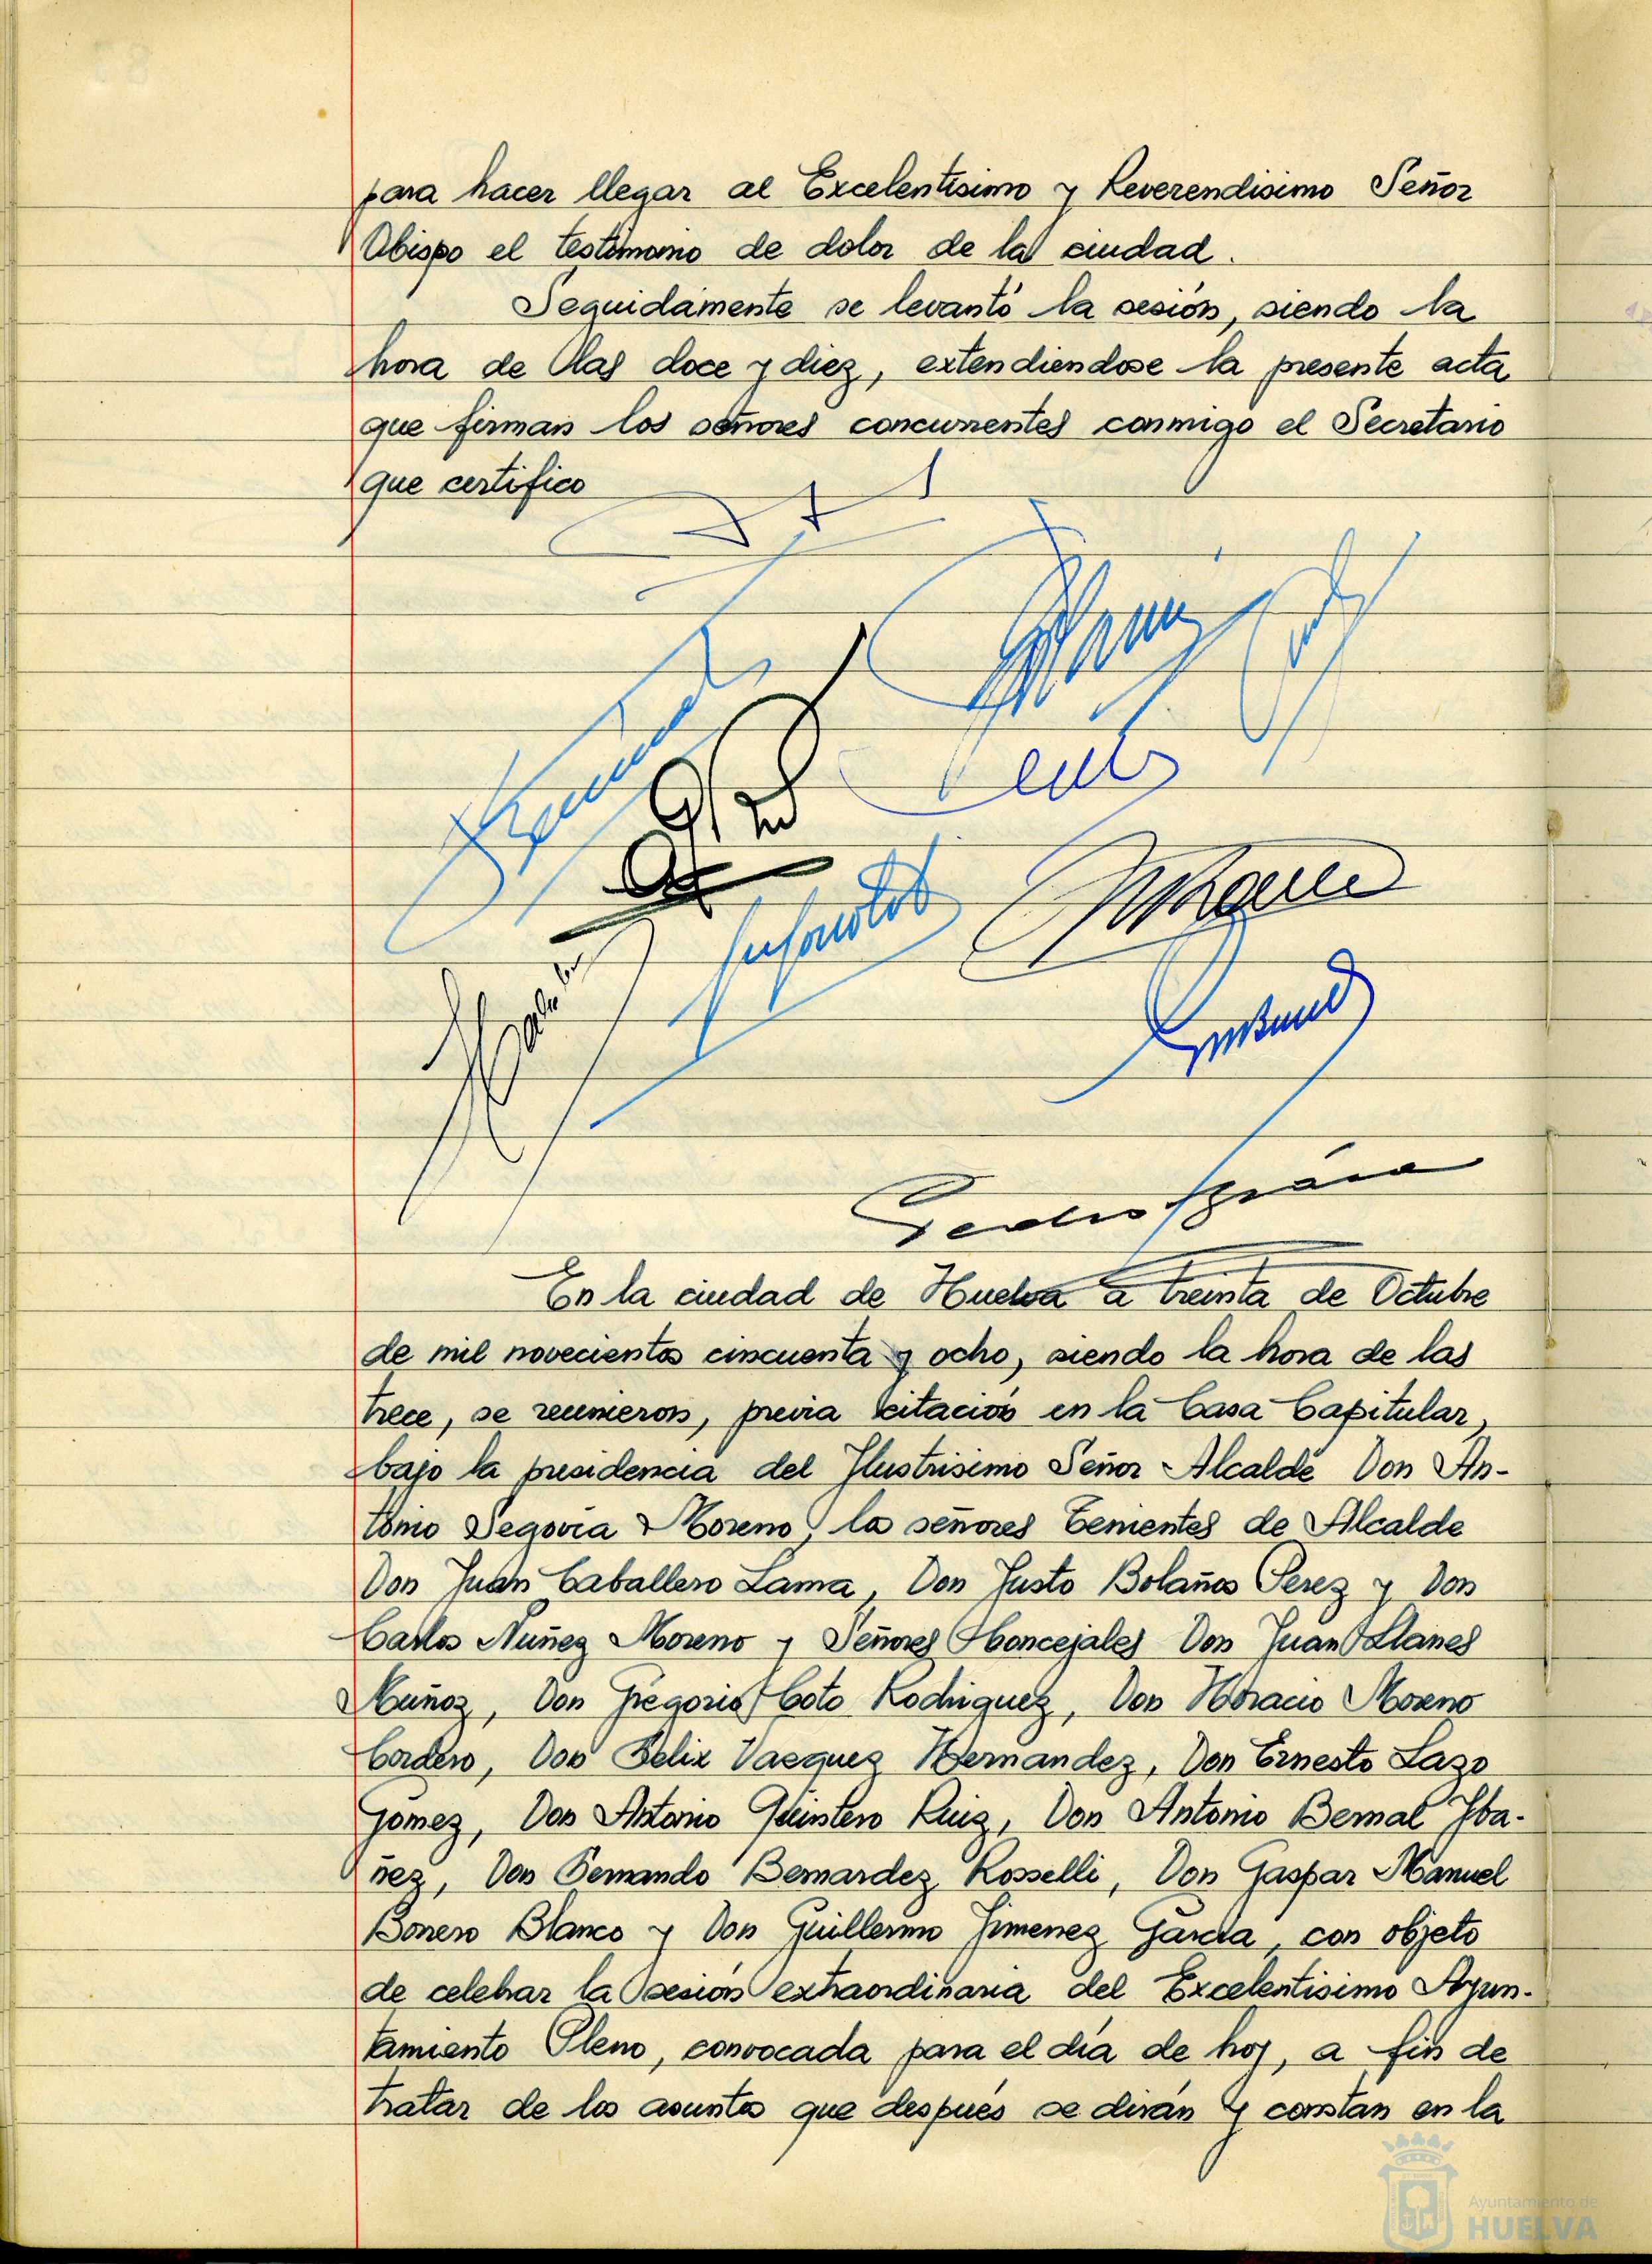 para hacer llegar al Excelentisimo y Reverendisimo Señor
Obispo el testimonio de dolor de la ciudad.
Seguidamente se levantó la sesión, siendo la
hora de las doce y diez, extendiendose la presente acta
que firman los señores concurrentes conmigo el Secretario
que certifico
Pedro Segovia
En la ciudad de Huelva a treinta de Octubre
de mil novecientos cincuenta y ocho, siendo la hora de las
trece, se reunieron, previa citación en la Casa Capitular,
bajo la presidencia del Ilustrisimo Señor Alcalde Don An-
tonio Segovia Moreno, los señores Tenientes de Alcalde
Don Juan Caballero Lama, Don Justo Bolaños Perez y Don
Carlos Nuñez Moreno y Señores Concejales Don Juan Llanes
Muñoz, Don Gregorio Coto Rodriguez, Don Horacio Moreno
Cordero, Don Felix Vazquez Hernandez, Don Ernesto Lazo
Gomez, Don Antonio Quintero Ruiz, Don Antonio Bernal Iba-
ñez, Don Fernando Bernardez Rosselli, Don Gaspar Manuel
Bonero Blanco y Don Guillermo Jimenez Garcia, con objeto
de celebrar la sesión extraordinaria del Excelentisimo Ayun-
tamiento Pleno, convocada para el día de hoy, a fin de
tratar de los asuntos que después se dirán y constan en la
Ayuntamiento de
HUELVA